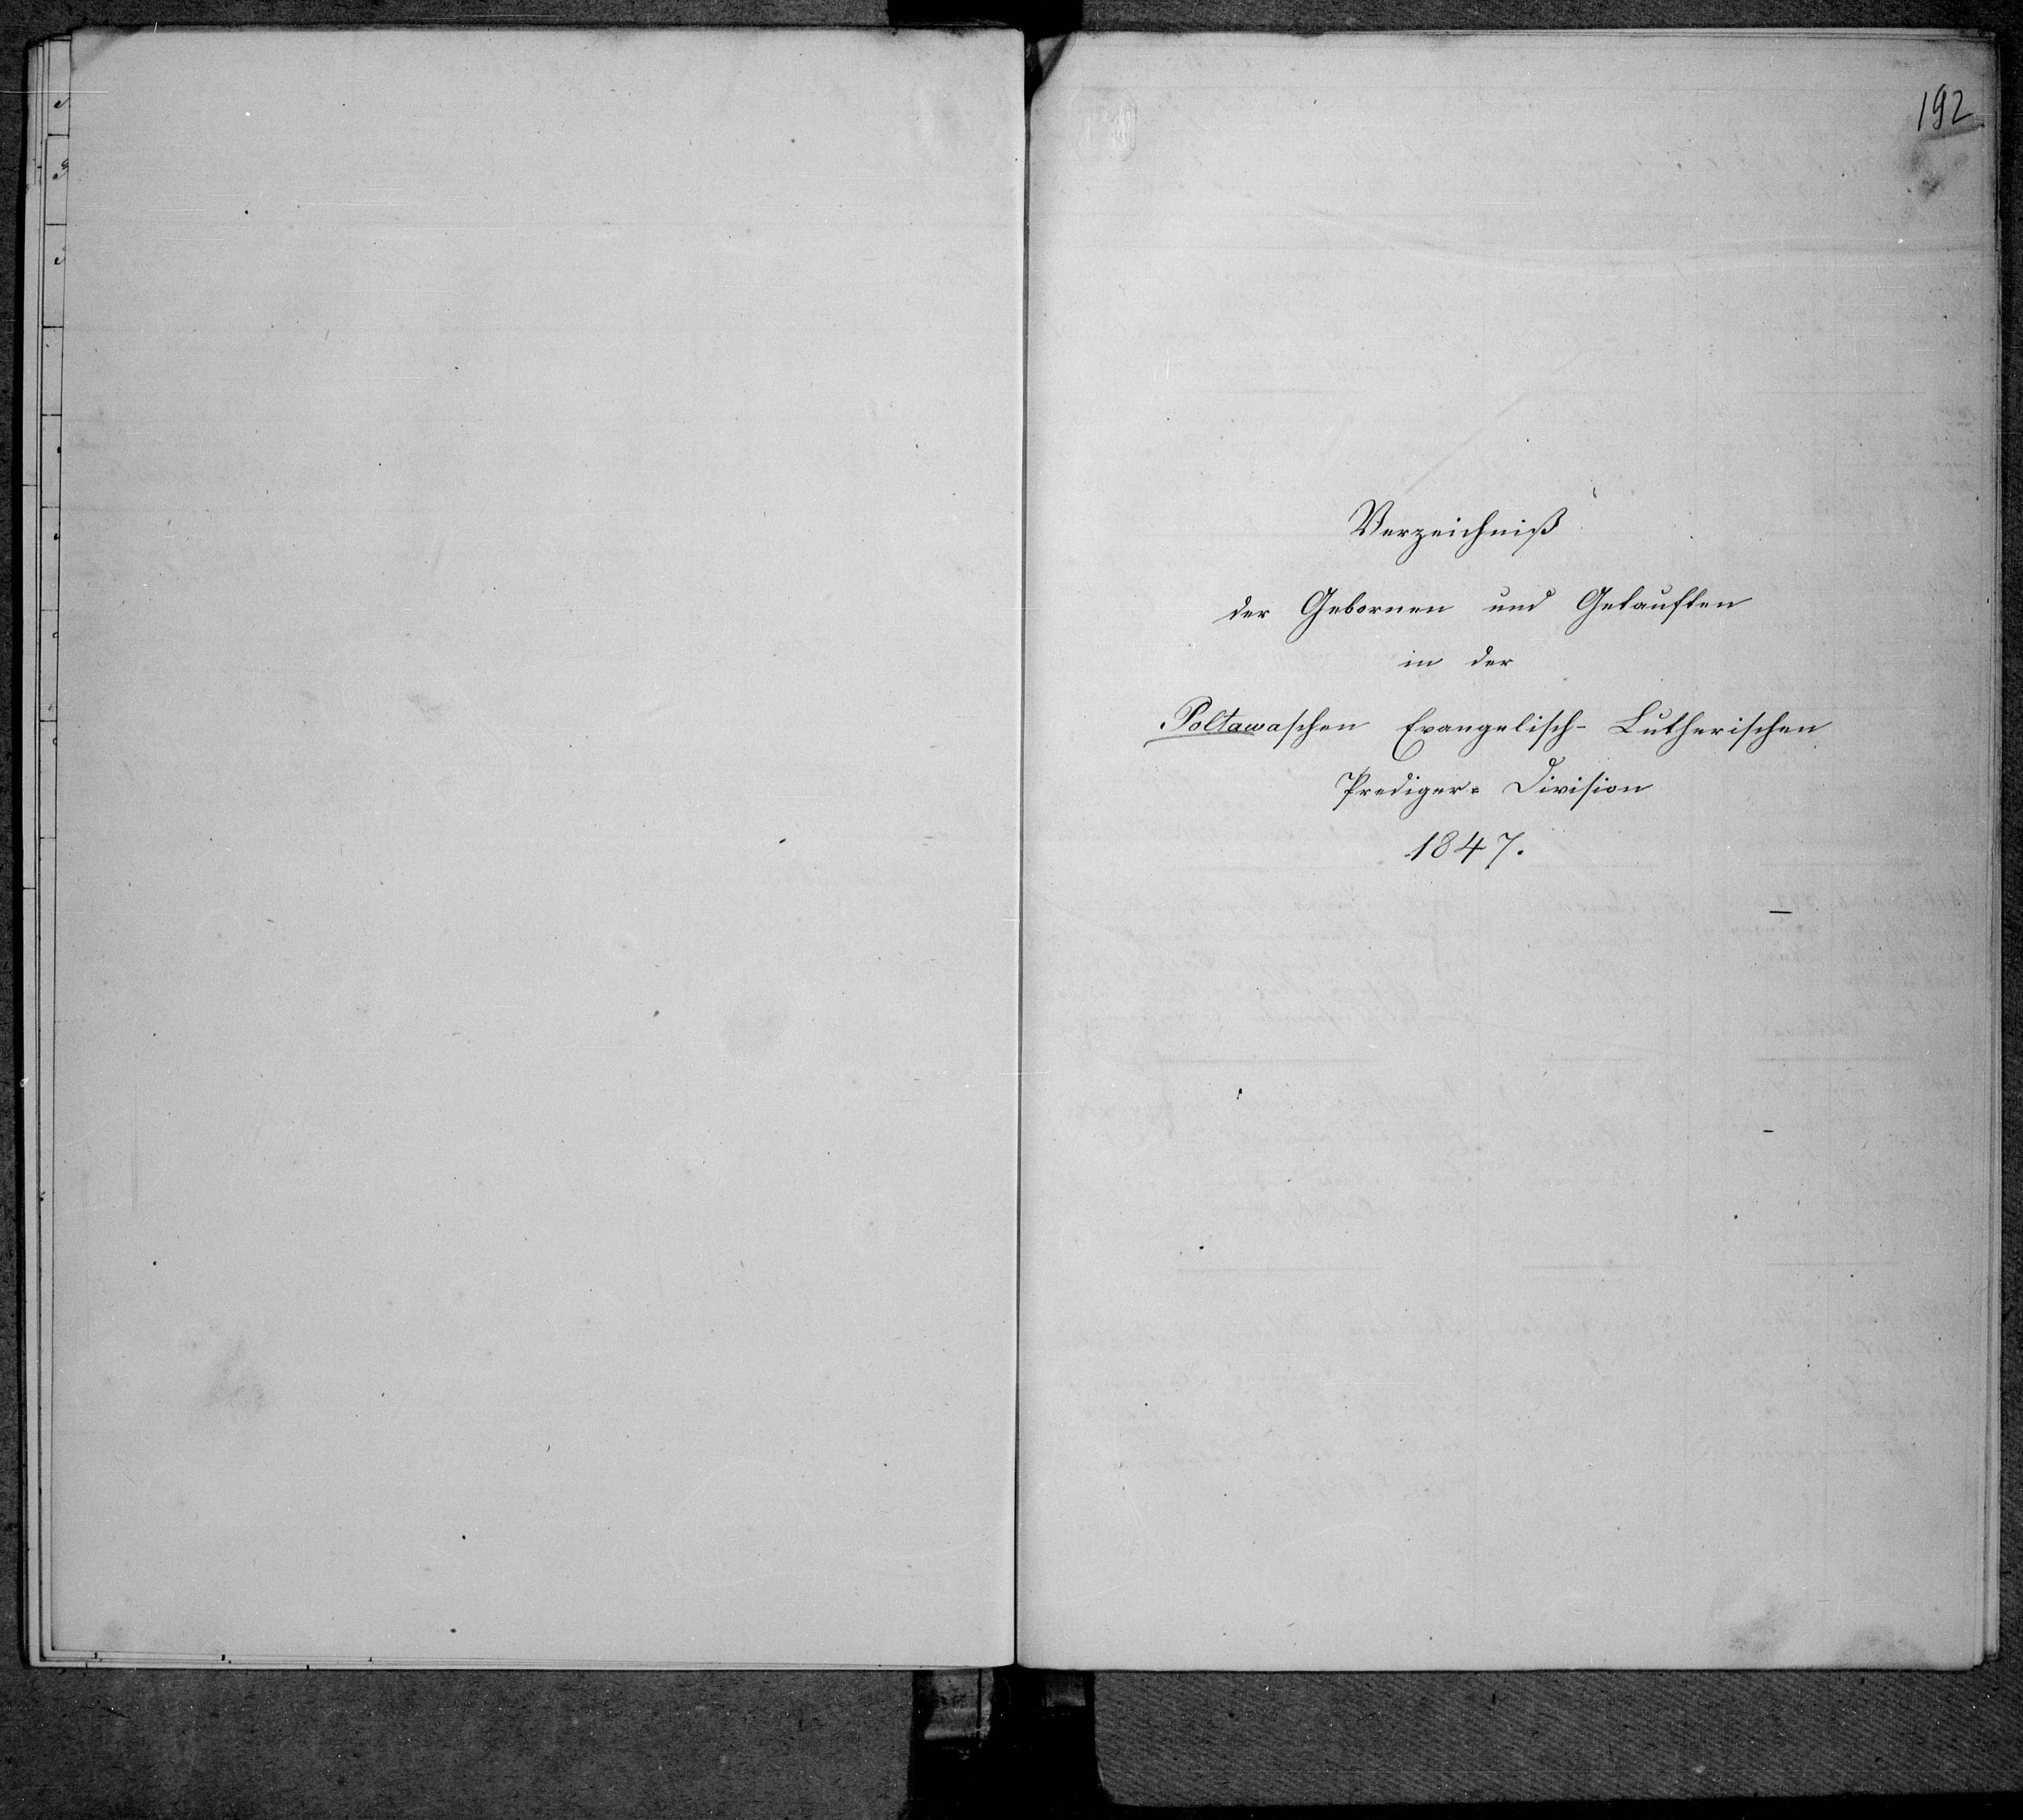 192
Verzeichniß
der Gebornen und Getauften
in der
Poltawaschen Evangelisch-Lutherischen
Prediger=Division
1847.